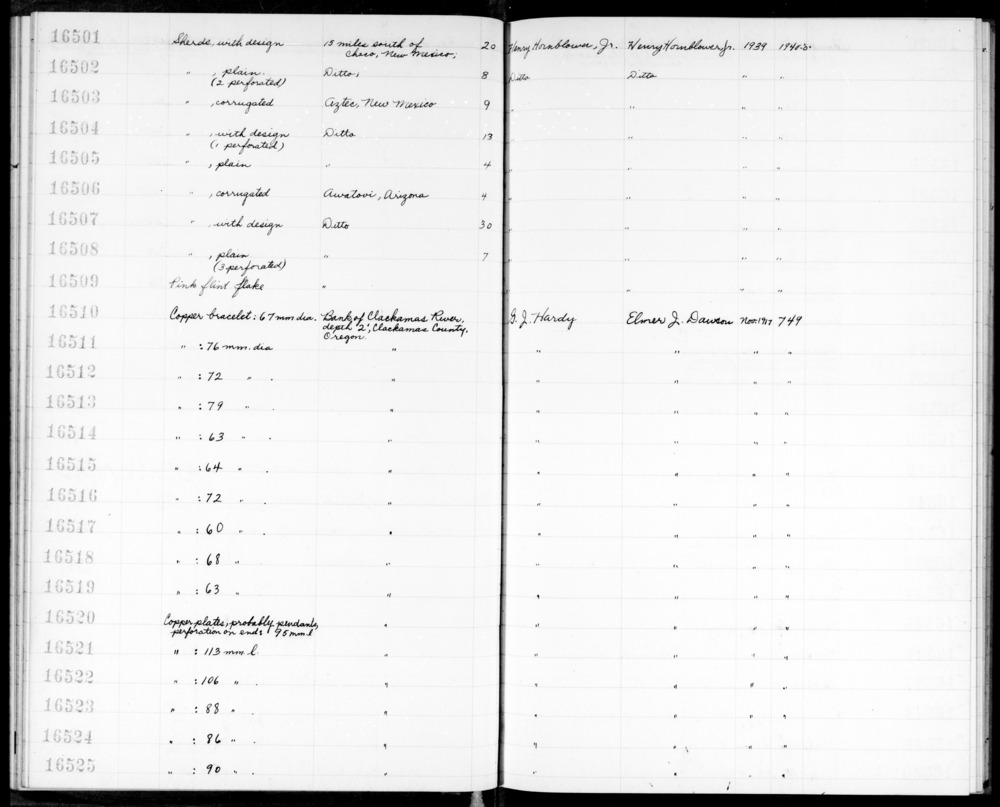 16501 Sherds, with design 15 miles south of 20 Henry Hornblower, Jr. Henry Hornblower Jr. 1939
Chaco, New Mexico;
16502 " , plain. Ditto; 8 Ditto Ditto " "
(2 perforated)
16503 " , corrugated Aztec, New Mexico 9 " " " "
16504 " , with design Ditto 13 " " " "
(1 perforated)
16505 " , plain " 4 " " " "
16506 " , corrugated Awatovi, Arizona 4 " " " "
16507 " , with design Ditto 30 " " " "
16508 " , plain " 7 " " " "
(3 perforated)
16509 Pink flint flake " " " " "
16510 Copper bracelet: 67 mm dia. Bank of Clackamas River, G. J. Hardy Elmer J. Dawson Nov. 1917 749
depth 2', Clackamas County,
Oregon.
16511 " : 76 mm. dia " " " " "
16512 " : 72 " . " " " " "
16513 " : 79 " . " " " " "
16514 " : 63 " . " " " " "
16515 " : 64 " . " " " " "
16516 " : 72 " . " " " " "
16517 " : 60 " . " " " " "
16518 " : 68 " " " " " "
16519 " : 63 " . " " " " "
16520 Copper plates, probably pendants, " " " " "
perforation on end: 95 mm. l
16521 " : 113 mm. l. " " " " "
16522 " : 106 " . " " " " "
16523 " : 88 " . " " " " "
16524 " : 86 " . " " " " "
16525 " : 90 " . " " " " "